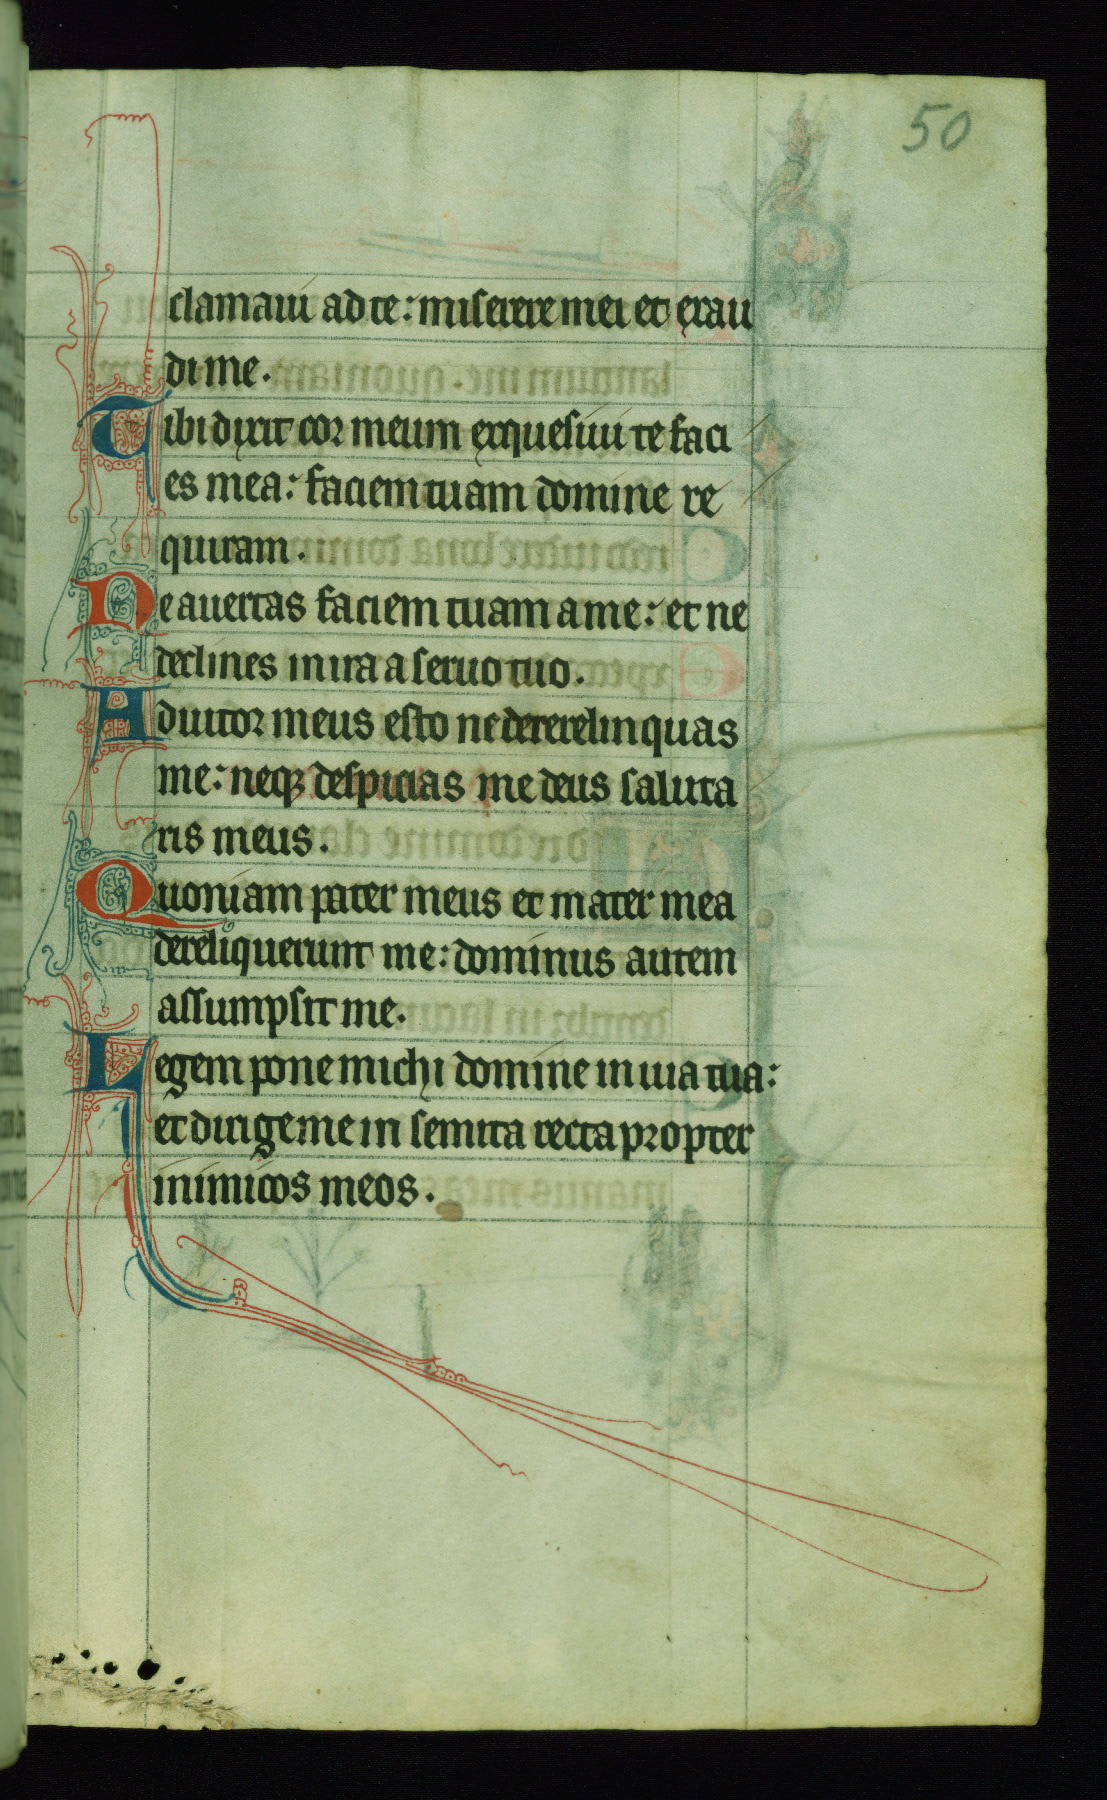 50
clamaui ad te: miserere mei et exau
di me.
Tibi dixit cor meum exquesiui te faci
es mea: faciem tuam domine re
quiram.
Ne auertas faciem tuam a me: et ne
declines in ira a seruo tuo.
Adiutor meus esto ne dererelinquas
me: neqꝫ despicias me deus saluta
ris meus.
Quoniam pater meus et mater mea
dereliquerunt me: dominus autem
assumpsit me.
Legem pone michi domine in uia tua:
et dirige me in semita recta propter
inimicos meos.